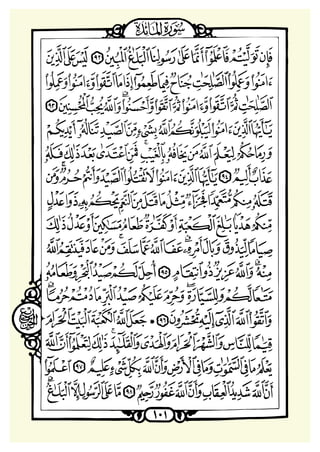 سُورَةُ الْمَائِدَة
فَإِن تَوَلَّيْتُمْ فَاعْلَمُوٓا۟ أَنَّمَا عَلَىٰ رَسُولِنَا الْبَلَٰغُ الْمُبِينُ ٩٢ لَيْسَ عَلَى الَّذِينَ
ءَامَنُوا۟ وَعَمِلُوا۟ الصَّٰلِحَٰتِ جُنَاحٌ فِيمَا طَعِمُوٓا۟ إِذَا مَا اتَّقَوا۟ وَّءَامَنُوا۟ وَعَمِلُوا۟
الصَّٰلِحَٰتِ ثُمَّ اتَّقَوا۟ وَّءَامَنُوا۟ ثُمَّ اتَّقَوا۟ وَّأَحْسَنُوا۟ وَاللَّهُ يُحِبُّ الْمُحْسِنِينَ ٩٣
يَٰٓأَيُّهَا الَّذِينَ ءَامَنُوا۟ لَيَبْلُوَنَّكُمُ اللَّهُ بِشَىْءٍ مِّنَ الصَّيْدِ تَنَالُهُۥٓ أَيْدِيكُمْ
وَرِمَاحُكُمْ لِيَعْلَمَ اللَّهُ مَن يَخَافُهُۥ بِالْغَيْبِ فَمَنِ اعْتَدَىٰ بَعْدَ ذَٰلِكَ فَلَهُۥ
عَذَابٌ أَلِيمٌ ٩٤ يَٰٓأَيُّهَا الَّذِينَ ءَامَنُوا۟ لَا تَقْتُلُوا۟ الصَّيْدَ وَأَنتُمْ حُرُمٌ وَمَن
قَتَلَهُۥ مِنكُم مُّتَعَمِّدًا فَجَزَآءٌ مِّثْلُ مَا قَتَلَ مِنَ النَّعَمِ يَحْكُمُ بِهِۦ ذَوَا عَدْلٍ
مِّنكُمْ هَدْيًۢا بَٰلِغَ الْكَعْبَةِ أَوْ كَفَّٰرَةٌ طَعَامُ مَسَٰكِينَ أَوْ عَدْلُ ذَٰلِكَ
صِيَامًا لِّيَذُوقَ وَبَالَ أَمْرِهِۦ عَفَا اللَّهُ عَمَّا سَلَفَ وَمَنْ عَادَ فَيَنتَقِمُ اللَّهُ
مِنْهُ وَاللَّهُ عَزِيزٌ ذُو انتِقَامٍ ٩٥ أُحِلَّ لَكُمْ صَيْدُ الْبَحْرِ وَطَعَامُهُۥ
مَتَٰعًا لَّكُمْ وَلِلسَّيَّارَةِ وَحُرِّمَ عَلَيْكُمْ صَيْدُ الْبَرِّ مَا دُمْتُمْ حُرُمًا
وَاتَّقُوا۟ اللَّهَ الَّذِىٓ إِلَيْهِ تُحْشَرُونَ ٩٦ جَعَلَ اللَّهُ الْكَعْبَةَ الْبَيْتَ الْحَرَامَ
قِيَٰمًا لِّلنَّاسِ وَالشَّهْرَ الْحَرَامَ وَالْهَدْىَ وَالْقَلَٰٓئِدَ ذَٰلِكَ لِتَعْلَمُوٓا۟ أَنَّ اللَّهَ
يَعْلَمُ مَا فِى السَّمَٰوَٰتِ وَمَا فِى الْأَرْضِ وَأَنَّ اللَّهَ بِكُلِّ شَىْءٍ عَلِيمٌ ٩٧ اعْلَمُوٓا۟
أَنَّ اللَّهَ شَدِيدُ الْعِقَابِ وَأَنَّ اللَّهَ غَفُورٌ رَّحِيمٌ ٩٨ مَّا عَلَى الرَّسُولِ إِلَّا الْبَلَٰغُ
١٠١